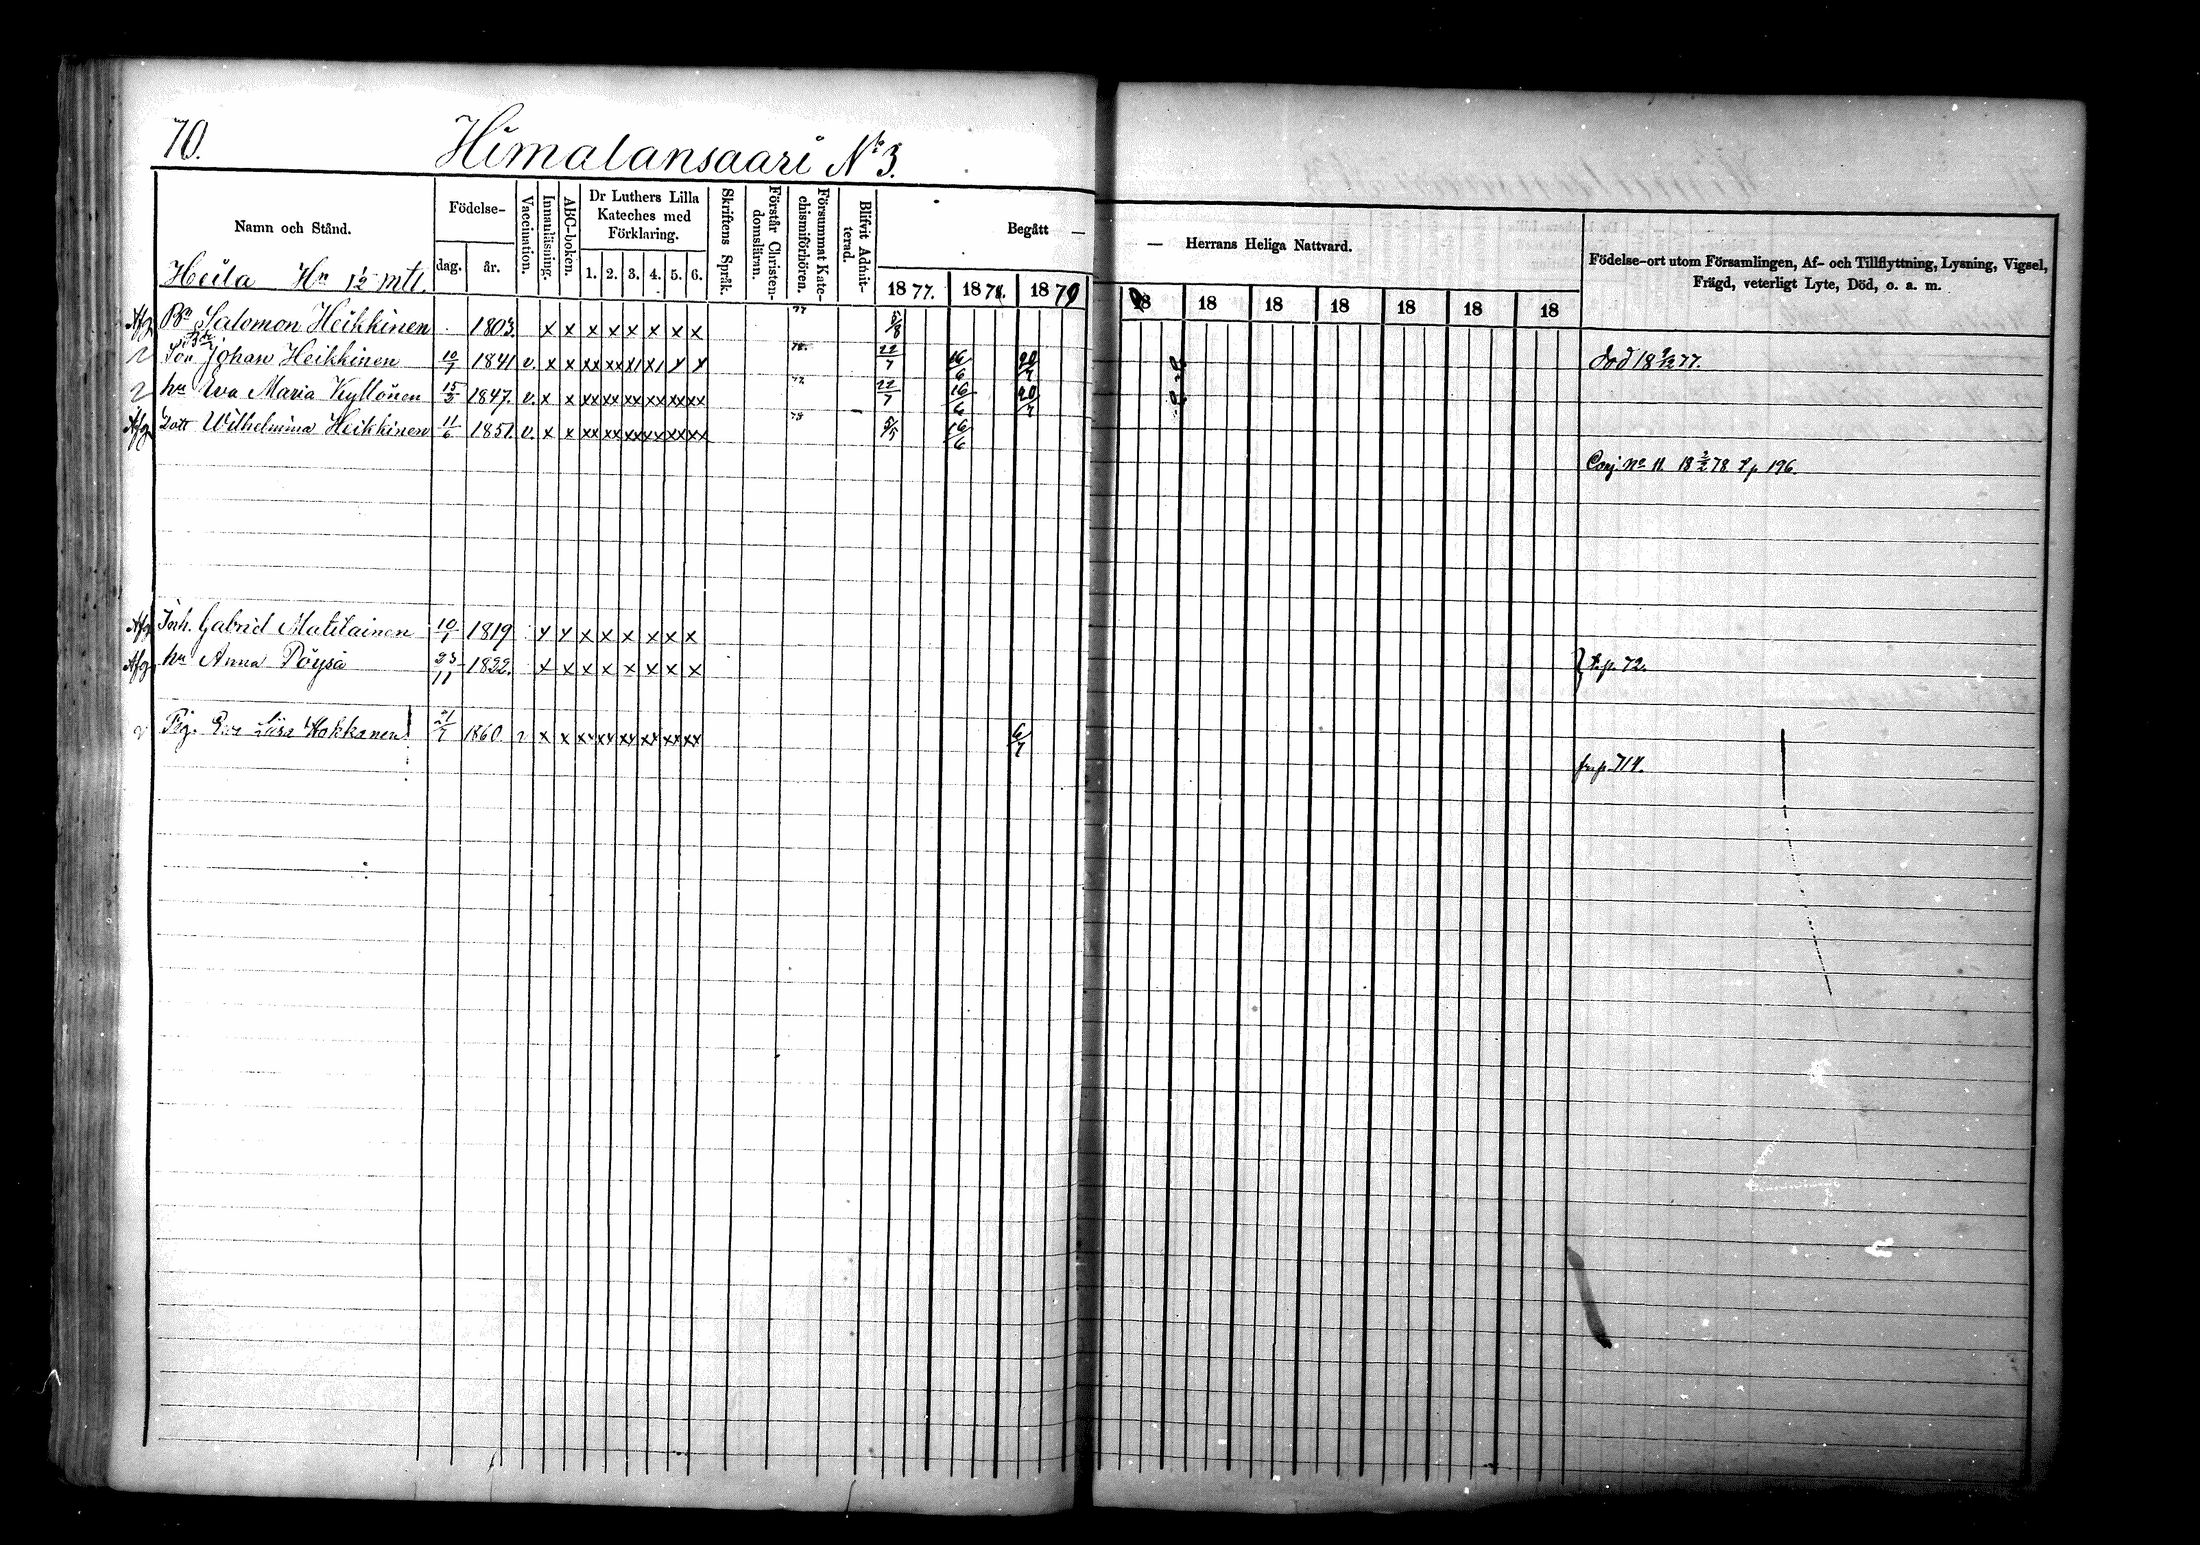 70.
Himalansaari No 3.
Namn och Stånd.
Födelse-
dag.
år.
Vaccination.
Innanläsning.
ABC-boken.
Dr Luthers Lilla
Kateches med
Förklaring.
1. 2. 3. 4. 5. 6.
Skriftens Språk.
Förstår Christen-
domsläran.
Försummat Kate-
chismiförhören.
Blifvit Admit-
terad.
Begått —
— Herrans Heliga Nattvard.
Födelse-ort utom Församlingen, Af- och Tillflyttning, Lysning, Vigsel,
Frägd, veterligt Lyte, Död, o. a. m.
1877. 1878. 1879 18 18 18 18 18 18 18
Heila Hn 1/2 mtl.
Afg Bn Salomon Heikkinen 1803 x x x x x x x x 77 5/8
Son Johan Heikkinen 10/7 1841 v. x x xx xx x x 78. 22/7 16/6 20/7 död 18 9/12 77.
hu Eva Maria Kyllönen 15/2 1847. v. x x xx xx xx xx xx xx 77. 22/7 16/6 20/7
Afg Dott Wilhelmina Heikkinen 11/6 1851. v. x x xx xx xx xx xx xx 78 5/5 16/6
Conj. No 11 18 3/2 78 t.p. 196.
Afg Inh. Gabriel Matilainen 10/1 1819 x x x x x x x x
Afg hu Anna Pöysä 23/11 1822. x x x x x x x x } t.p. 72.
Pig. Eva Liisa Hokkanen 21/7 1860 v x x xx xx xx xx xx xx 6/7
fr.p. 714.